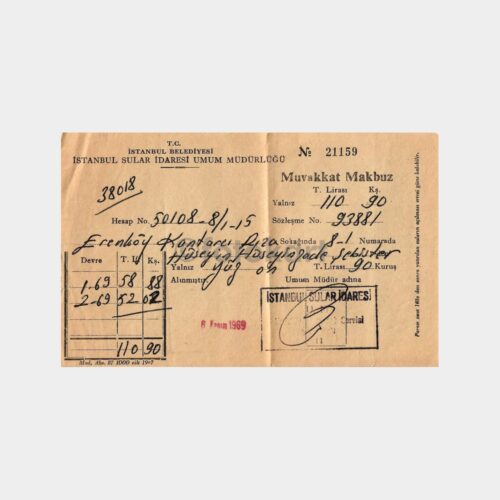 T.C.
İSTANBUL BELEDİYESİ
İSTANBUL SULAR İDARESİ UMUM MÜDÜRLÜĞÜ
№ 21159
Muvakkat Makbuz
T. Lirası Kş.
38018
Yalnız 110 90
Hesap No. 50108-8/1-15 Sözleşme No. 93881
Erenköy Kantarcı Rıza Sokağında 8-1 Numarada
Hüseyin Hüseyinzade Şebüster
Yalnız Yüz on T. Lirası 90 Kuruş
Alınmıştır. Umum Müdür adına
Devre T. L. Kş.
1-69 58 88
2-69 52 02
110 90
6 Kasım 1969
İSTANBUL SULAR İDARESİ
Servisi
Mod. Abo. 87 1000 cilt 1967